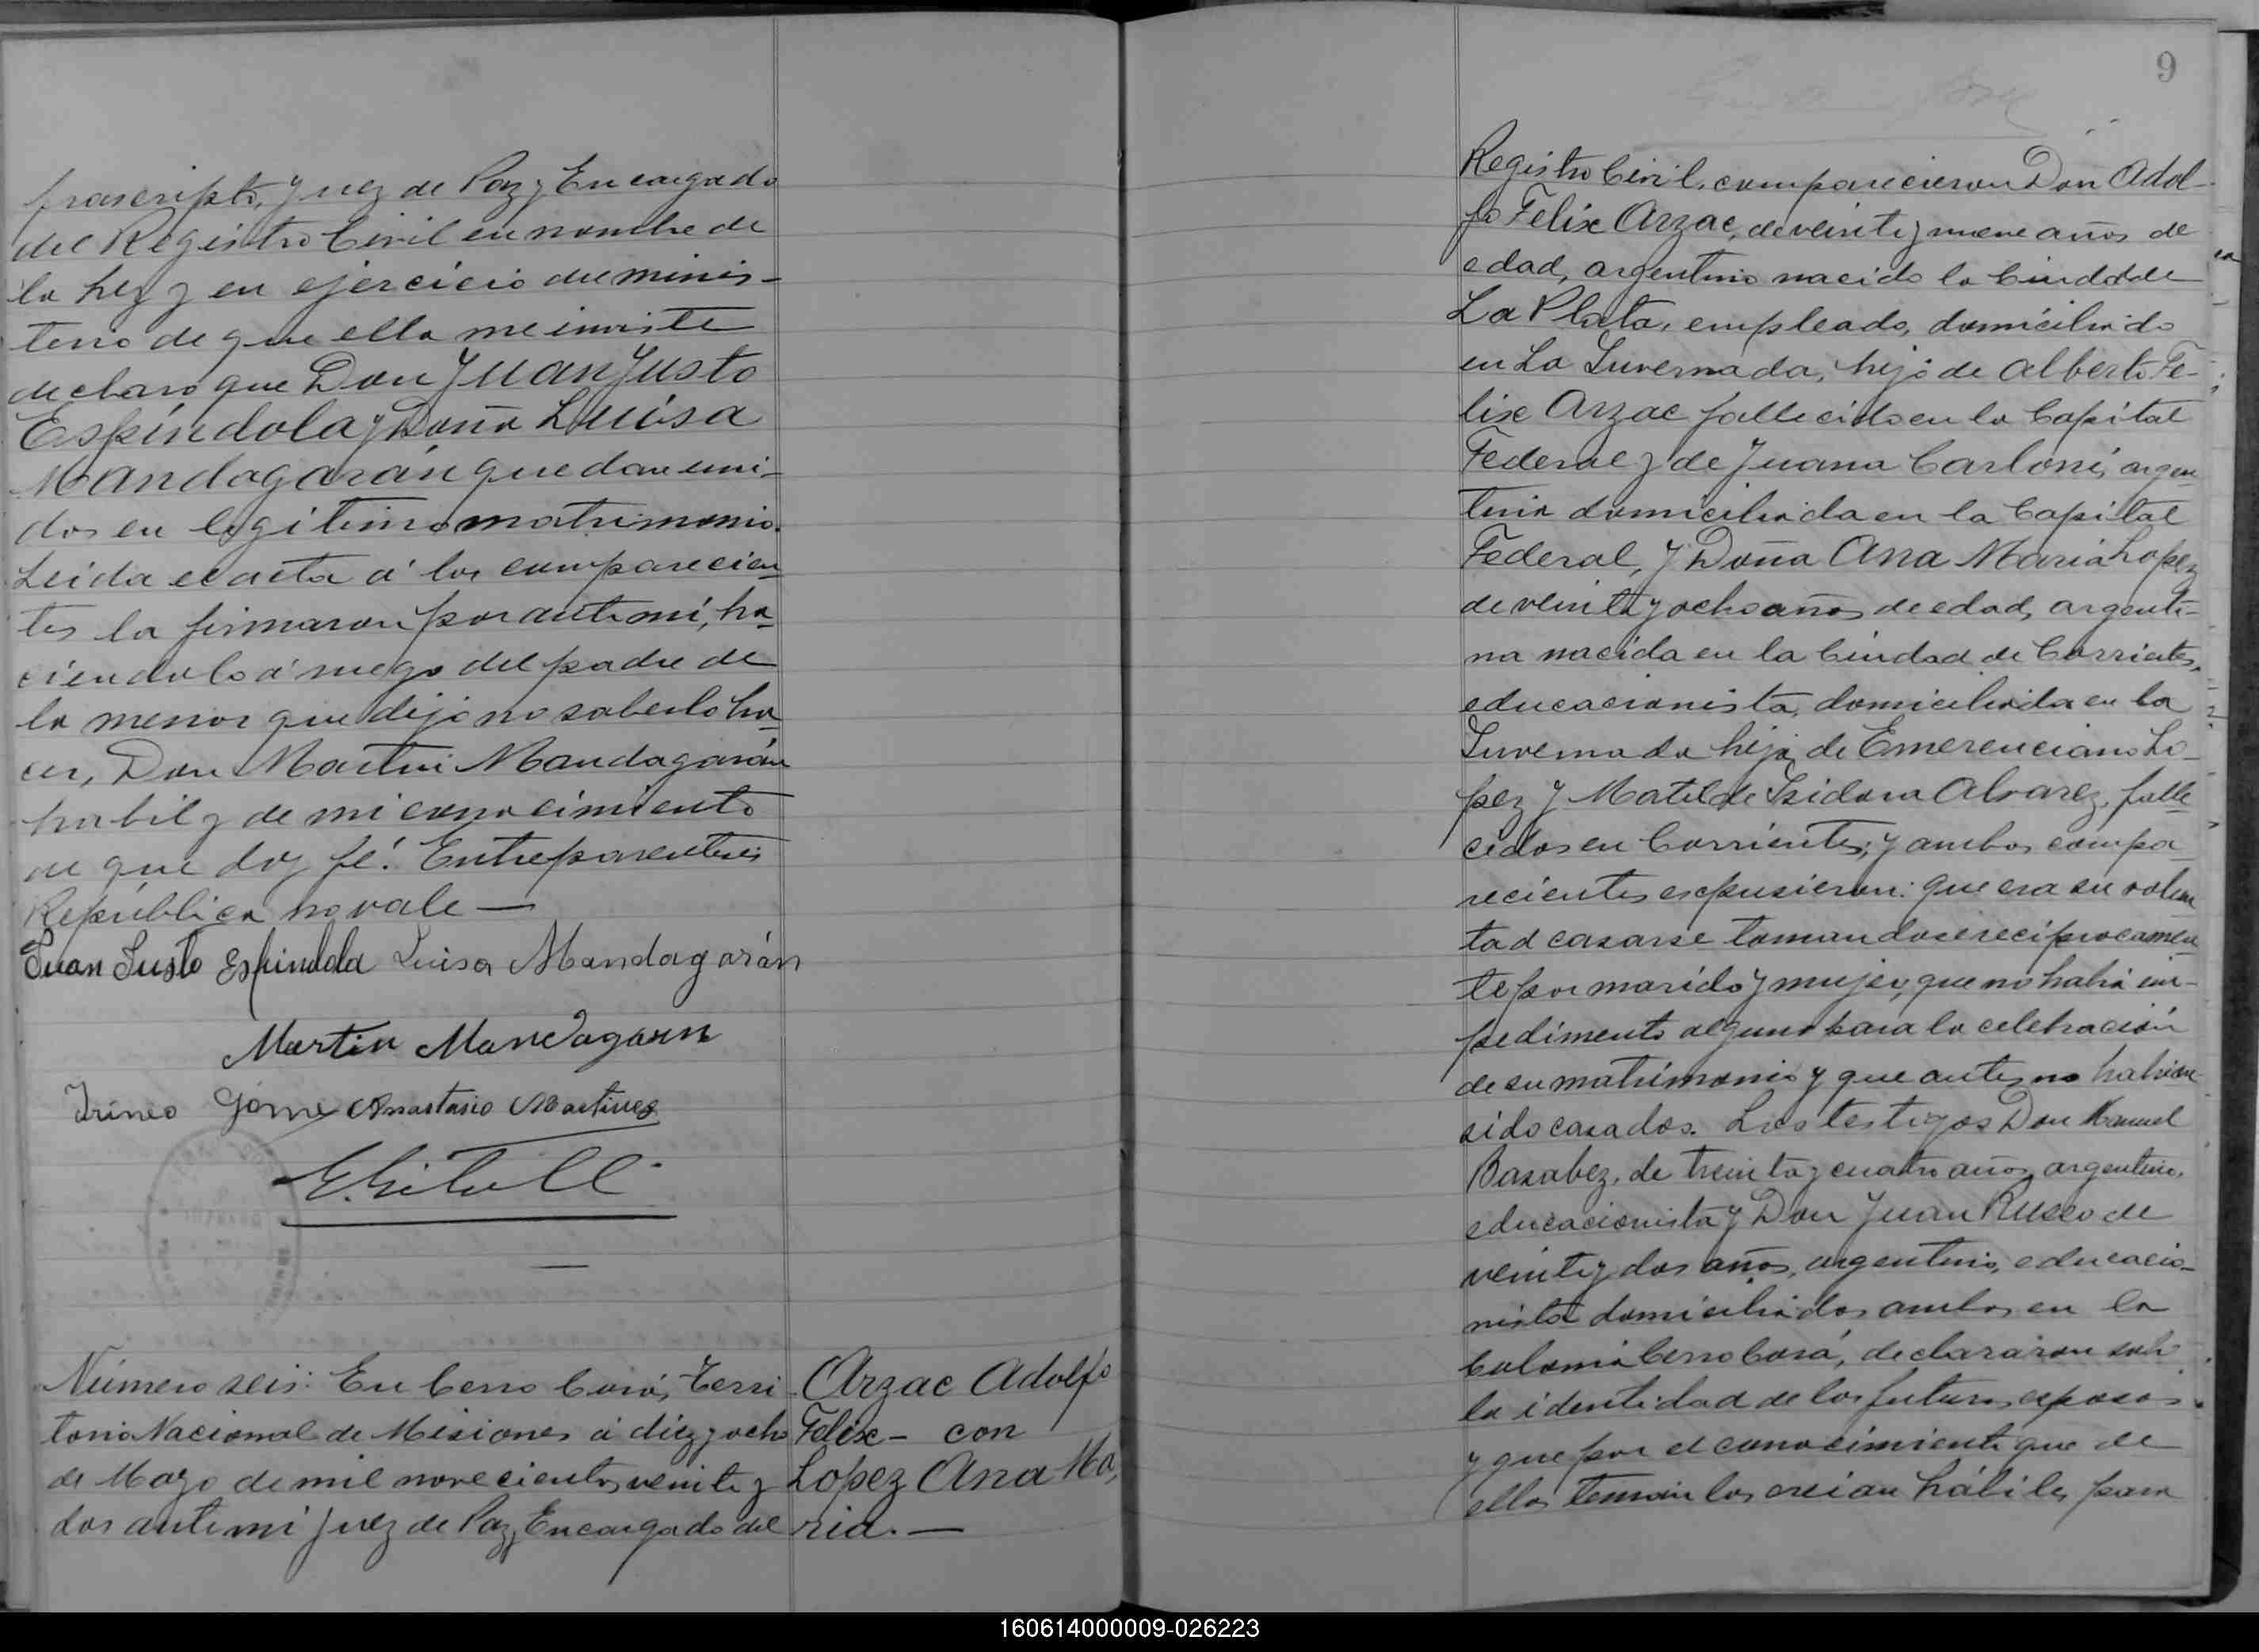 frascripto, Juez de Paz y Encargado
del Registro Civil en nombre de
la ley y en ejercicio del minis-
terio de que ella me inviste
declaro que Don Juan Justo
Espíndola y Doña Luisa
Mandagarán quedan uni-
dos en legítimo matrimonio.
Leida el acta á los comparecien
tes la firmaron por ante mi, ha
ciendolo á ruego del padre de
la menor que dijo no saberlo ha
cer, Don Martin Mandagarán
habil y de mi conocimiento
de que doy fé. Entreparentesis
República no vale —
Juan Justo Espindola Luisa Mandagarán
Martin Mandagarn
Irineo Gome Anastasio Martinez
Número seis: En Cerro Corá, Terri
torio Nacional de Misiones á diez y ocho
de Mayo de mil novecientos veinte y
dos ante mi Juez de Paz y Encargado del
Arzac Adolfo
Felix - con
Lopez Ana Ma,
ria. —
9
Registro Civil, comparecieron Don Adol-
fo Felix Arzac, de veinte y nueve años de
edad, argentino nacido la Ciudad de
La Plata, empleado, domiciliado
en La Invernada, hijo de Alberto Fe-
lix Arzac fallecido en la Capital
Federal y de Juana Carloni, argen
tina domiciliada en la Capital
Federal, y Doña Ana Maria Lopez
de veinte y ocho años de edad, argenti-
na nacida en la Ciudad de Corrientes,
educacionista, domiciliada en La
Invernada hija de Emerenciano Lo-
pez y Matilde Isidora Alvarez, falle
cidos en Corrientes; y ambos compa
recientes expusieron: que era su volun
tad casarse tomandose reciprocamen
te por marido y mujer, que no habia im-
pedimento alguno para la celebración
de su matrimonio y que antes no habian
sido casados. Los testigos Don Manuel
Basabez, de treinta y cuatro años, argentino,
educacionista y Don Juan Russo de
veinte y dos años, argentino, educacio-
nista domiciliados ambos en la
Colonia Cerro Corá, declararon sob
la identidad de los futuros esposos
y que por el conocimiento que de
ellos tenian los creian hábiles para
160614000009-026223